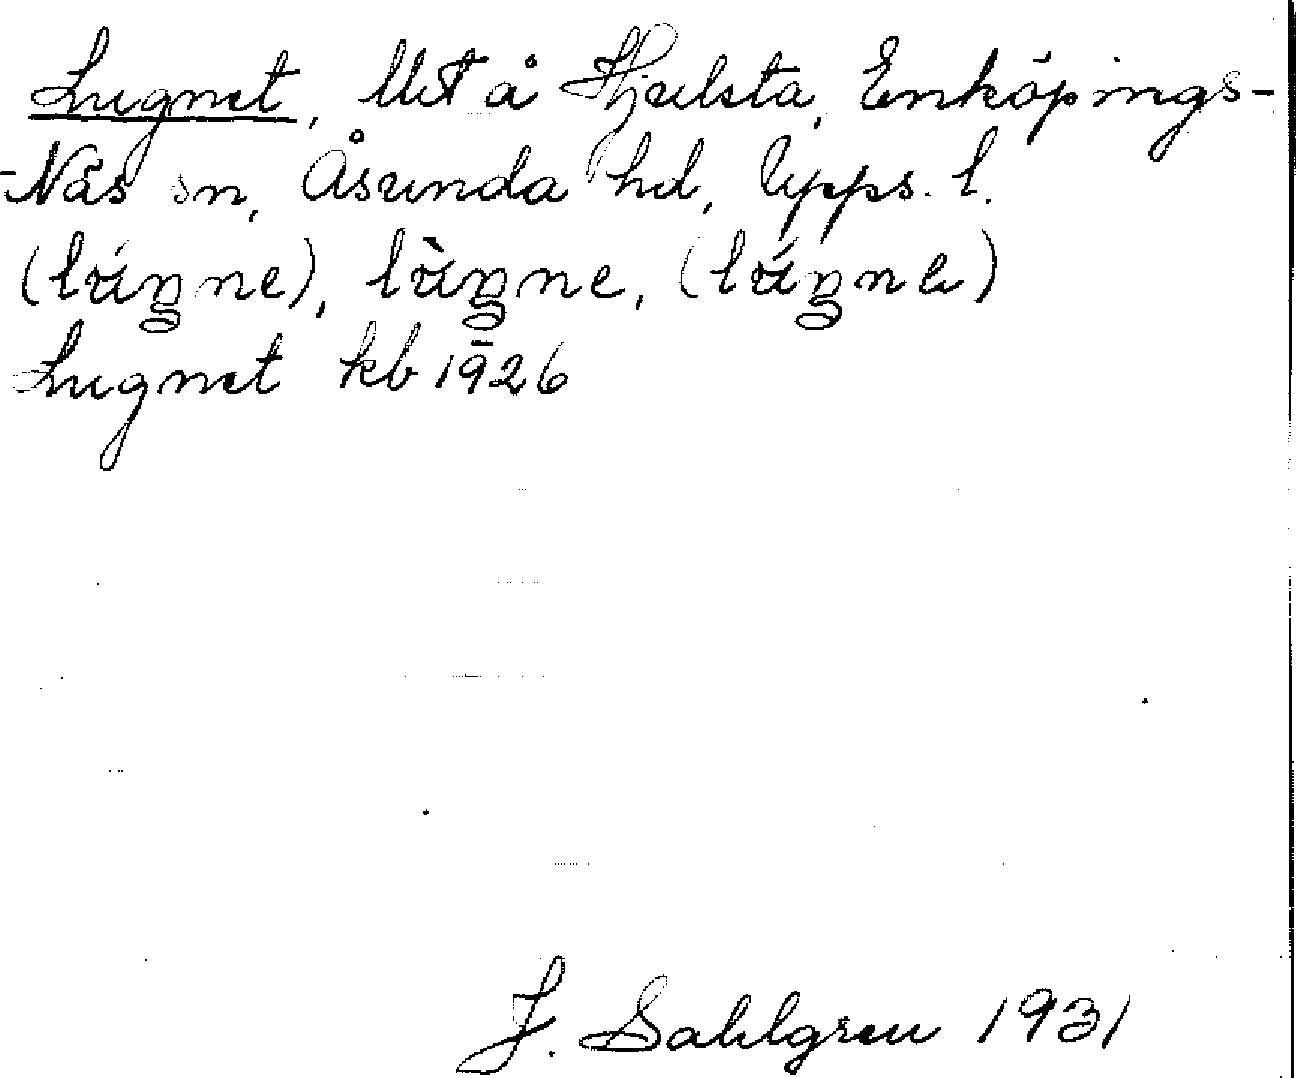 Lugnet, lht å Hjulsta, Enköpings-
-Näs sn, Åsunda hd, Upps. l.
(lúŋne), lùŋne, (lúŋnə)
Lugnet kb 1926
J. Sahlgren 1931